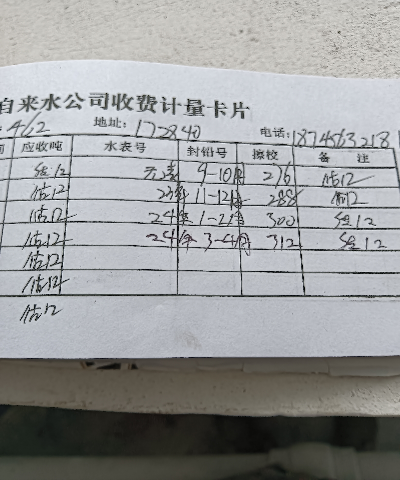 自来水公司收费计量卡片
4/12 地址: 172840 电话: 1874563218
应收吨 水表号 封铅号 擦校 备 注
估12 9-10月 276 估12
估12 23年 11-12月 288 估12
估12 24年 1-2月 300 估12
估12 24年 3-4月 312 估12
估12
估12
估12